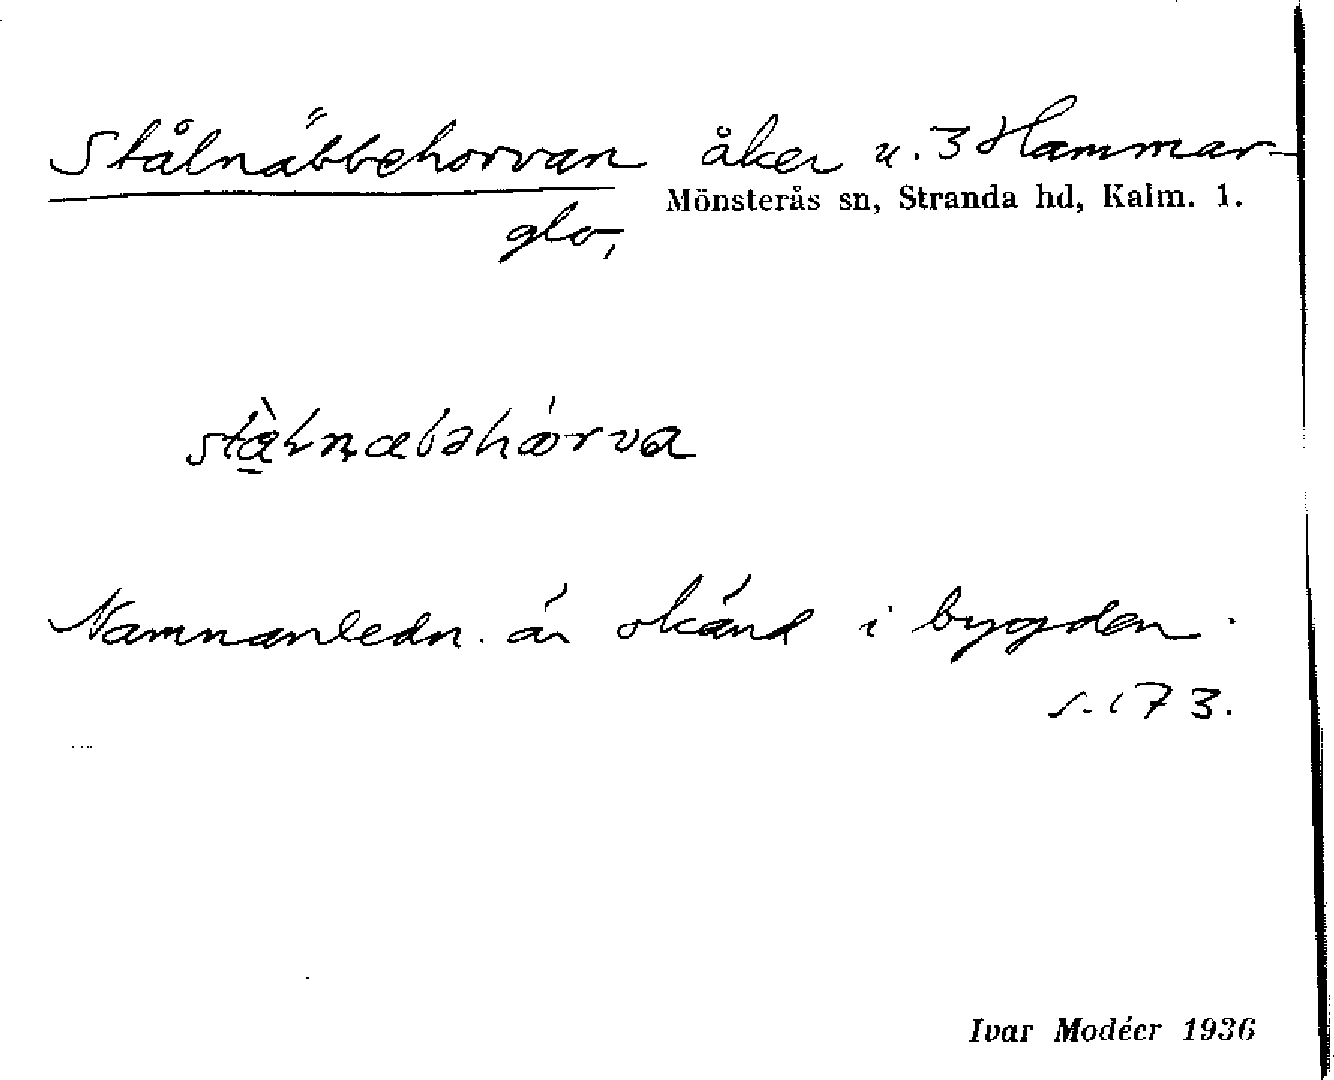 Stålnäbbehorvan åker u. 3 Hammar-
Mönsterås sn, Stranda hd, Kalm. l.
glo,
Namnanledn. är okänd i bygden.
s. 173.
Ivar Modéer 1936